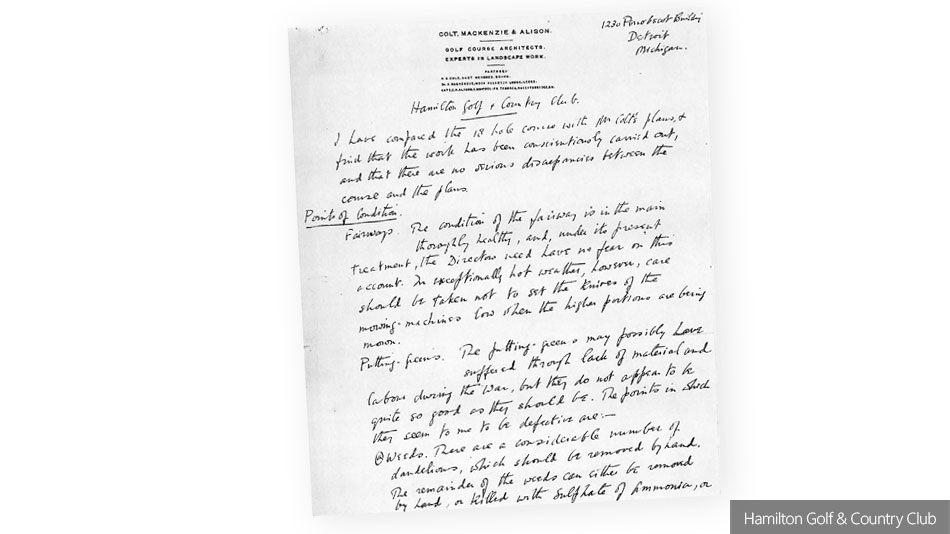 1230 Penobscot Building
Detroit
Michigan.
COLT, MACKENZIE & ALISON.
GOLF COURSE ARCHITECTS.
EXPERTS IN LANDSCAPE WORK.
PARTNERS
Hamilton Golf & Country Club.
I have compared the 18 hole course with Mr Colt's plans, &
find that the work has been conscientiously carried out,
and that there are no serious discrepancies between the
course and the plans.
Points of Condition.
Fairways. The condition of the fairway is in the main
thoroughly healthy, and, under its present
treatment, the Directors need have no fear on this
account. In exceptionally hot weather, however, care
should be taken not to set the knives of the
mowing-machines low when the higher portions are being
mown.
Putting-greens. The putting-greens may possibly have
suffered through lack of material and
labour during the War, but they do not appear to be
quite so good as they should be. The points in which
they seem to me to be defective are:—
Weeds. There are a considerable number of
dandelions, which should be removed by hand.
The remainder of the weeds can either be removed
by hand, or killed with Sulphate of Ammonia, or
Hamilton Golf & Country Club